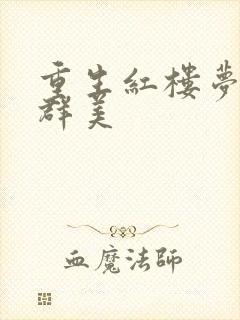 重生紅樓夢
群美
血魔法師